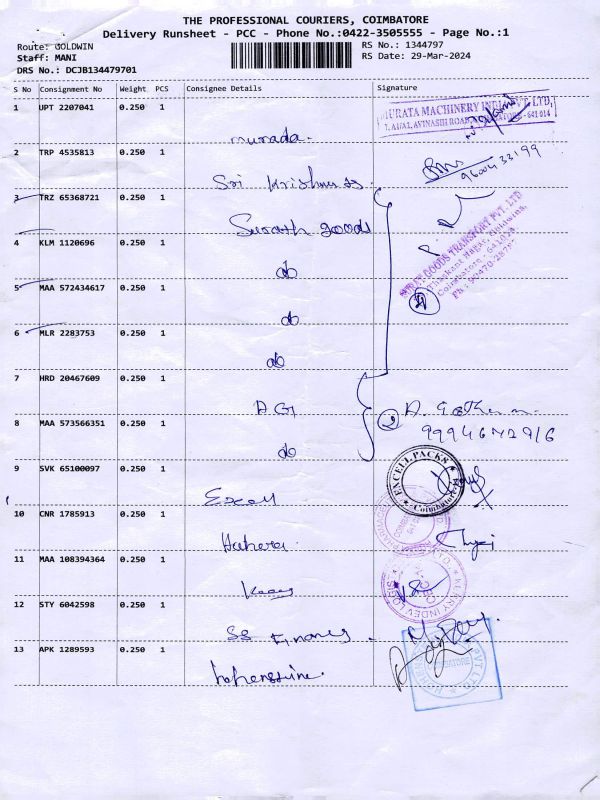 THE PROFESSIONAL COURIERS, COIMBATORE
Delivery Runsheet - PCC - Phone No.:0422-3505555 - Page No.:1
Route: GOLDWIN
RS No.: 1344797
Staff: MANI
RS Date: 29-Mar-2024
DRS No.: DCJB134479701
S No Consignment No Weight PCS Consignee Details Signature
1 UPT 2207041 0.250 1
MURATA MACHINERY INDIA PVT. LTD,
AVINASHI ROAD, - 641 014
murada.
2 TRP 4535813 0.250 1
9600433199
Sri Krishna ss
3 TRZ 65368721 0.250 1
Surath goods
4 KLM 1120696 0.250 1
GOODS TRANSPORT PVT. LTD
Coimbatore - 641014
do
5 MAA 572434617 0.250 1
4
do
6 MLR 2283753 0.250 1
do
7 HRD 20467609 0.250 1
DGI
2
8 MAA 573566351 0.250 1
do
9 SVK 65100097 0.250 1
EXCELL PACKS
Coimbatore
Excell
10 CNR 1785913 0.250 1
11 MAA 108394364 0.250 1
12 STY 6042598 0.250 1
SS Finance
13 APK 1289593 0.250 1